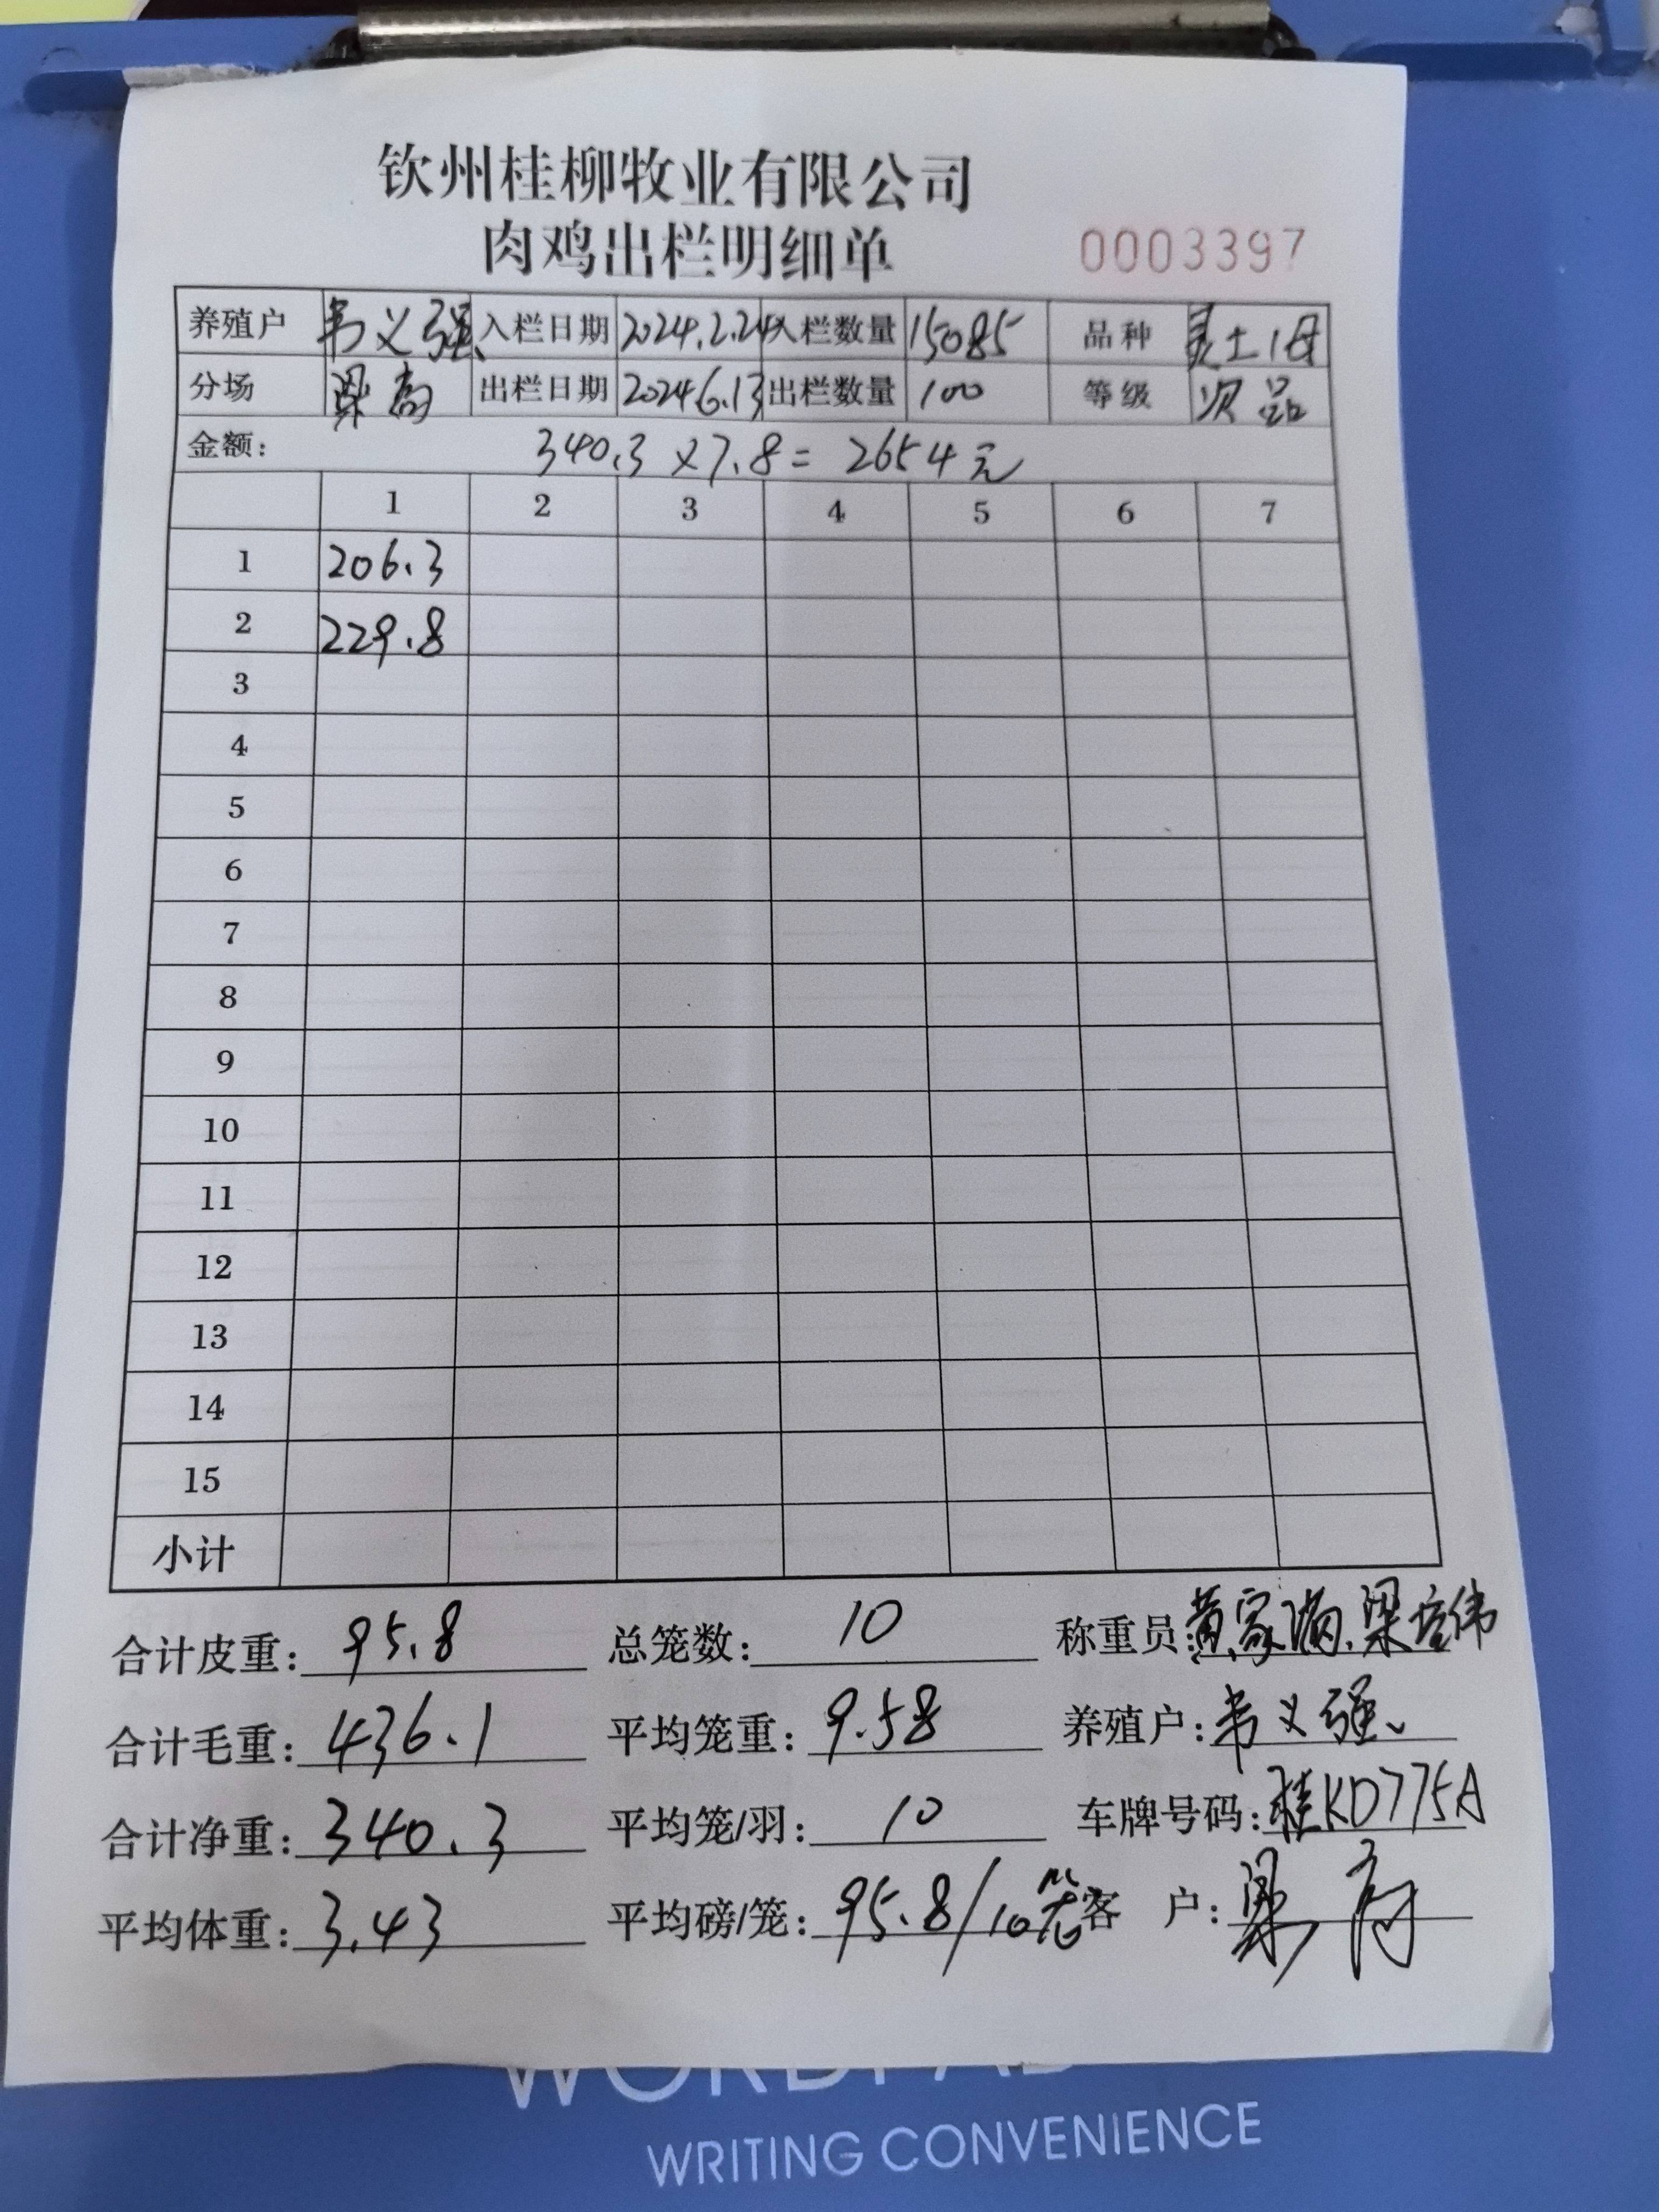 钦州桂柳牧业有限公司
肉鸡出栏明细单 0003397
养殖户 韦义强 入栏日期 2024.2.24 入栏数量 15085 品种 灵土1母
分场 出栏日期 2024.6.13 出栏数量 100 等级 次品
金额: 340.3×7.8=2654元
1 2 3 4 5 6 7
1 206.3
2 229.8
3
4
5
6
7
8
9
10
11
12
13
14
15
小计
合计皮重: 95.8 总笼数: 10 称重员: 黄家满.梁培伟
合计毛重: 436.1 平均笼重: 9.58 养殖户: 韦义强
合计净重: 340.3 平均笼/羽: 10 车牌号码: 桂KD775A
平均体重: 3.43 平均磅/笼: 95.8/10笼 客 户: 梁
WRITING CONVENIENCE